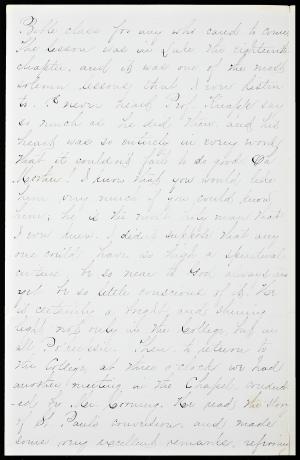 Bible class for any who cared to come.
The lesson was in Luke the eighteenth
chapter, and it was one of the most
solemn lessons that I ever listen
to. I never heard Prof. say
so much as he did then and his
heart was so entirely in every word
that it could not fail to do good. Oh
Mother! I know that you would like
him very much if you could know
him; he is the most holy man that
I ever knew. I didn't suppose that any
one could have so high a spiritual
culture, be so near to God always and
yet be so little conscious of it. He
is certainly a bright and shining
light not only in the College but in
all . Then to return to
the College, at three o'clock we had
another meeting in the Chapel conduct
-ed by Mr. Corning. He read the story
of St. Paul's conversion and made
some very excellent remarks, referring